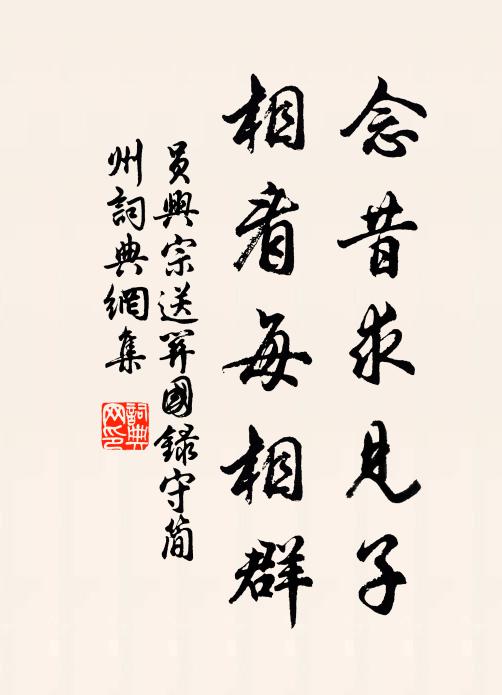 念昔求見子
相看每相群
員興宗送關國錄守簡
州詞典網集
詞典
网印